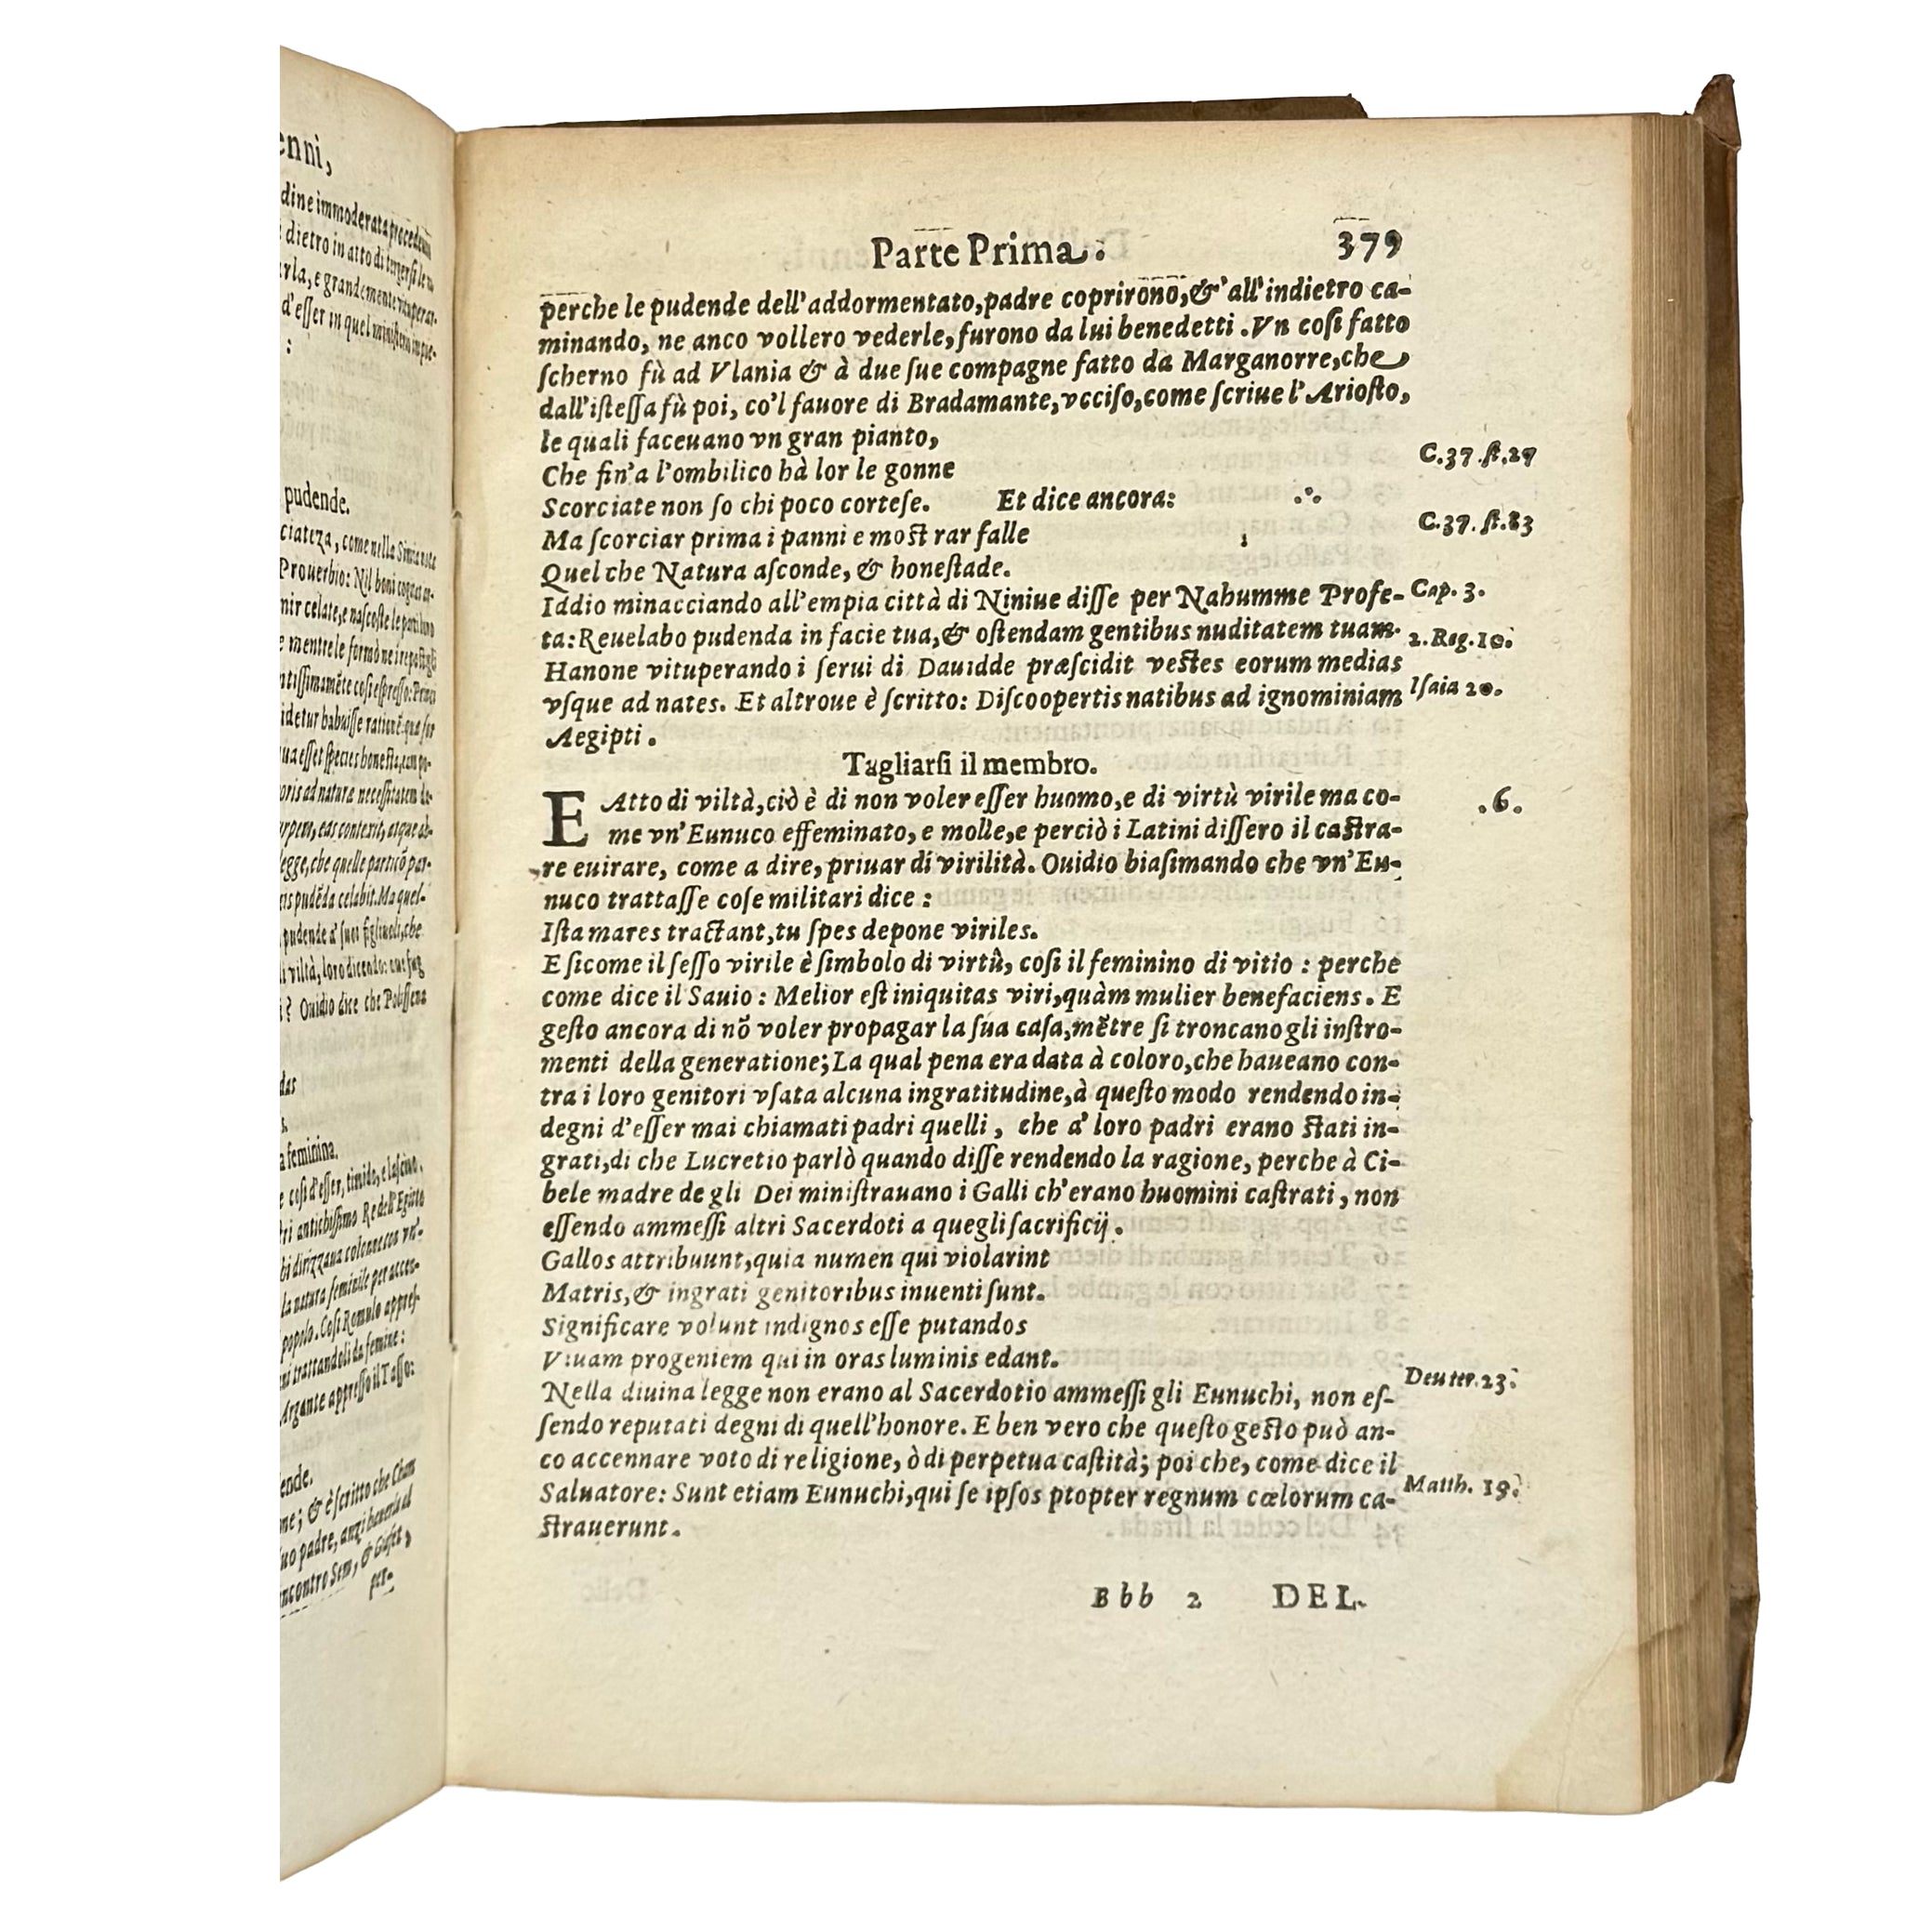 enni,
dine immoderata procedeua
dietro in atto di tergersi le
arla, e grandemente vituperar-
d'esser in quel ministerio
:
pudende.
Prouerbio: Nil boni
mentre le formò ne i
legge, che quelle
pudēda celabit. Ma quel-
pudende a' suoi figliuoli, che
di viltà, loro dicendo:
? Ouidio dice che Polissena
das
a feminina.
e così d'esser, timido, e lasciuo.
tri antichissimo Re dell'Egitto
bi dirizzaua colonne con vn'
la natura feminile per accen-
popolo. Così Romulo appres-
ni trattandoli da femine:
Argante appresso il Tasso:
ende.
ne; & è scritto che Cham
uo padre, anzi
ncontro Sem, & Giafet,
per-
Parte Prima. 379
perche le pudende dell'addormentato, padre coprirono, & all'indietro ca-
minando, ne anco vollero vederle, furono da lui benedetti. Vn cosi fatto
scherno fù ad Vlania & à due sue compagne fatto da Marganorre, che
dall'istessa fù poi, co'l fauore di Bradamante, vcciso, come scriue l'Ariosto,
le quali faceuano vn gran pianto,
C.37 st.27
Che fin'a l'ombilico hà lor le gonne
Scorciate non so chi poco cortese. Et dice ancora:
C.37. st.83
Ma scorciar prima i panni e most rar falle
Quel che Natura asconde, & honestade.
Iddio minacciando all'empia città di Niniue disse per Nahumme Profe- Cap. 3.
ta: Reuelabo pudenda in facie tua, & ostendam gentibus nuditatem tuam. 2. Reg. 10.
Hanone vituperando i serui di Dauidde præscidit vestes eorum medias
vsque ad nates. Et altroue è scritto: Discoopertis natibus ad ignominiam Isaia 20.
Aegipti.
Tagliarsi il membro.
E Atto di viltà, ciò è di non voler esser huomo, e di virtù virile ma co- .6.
me vn'Eunuco effeminato, e molle, e perciò i Latini dissero il castra-
re euirare, come a dire, priuar di virilità. Ouidio biasimando che vn'Eu-
nuco trattasse cose militari dice:
Ista mares tractant, tu spes depone viriles.
E sicome il sesso virile è simbolo di virtû, cosi il feminino di vitio: perche
come dice il Sauio: Melior est iniquitas viri, quàm mulier benefaciens. E
gesto ancora di nõ voler propagar la sua casa, mẽtre si troncano gli instro-
menti della generatione; La qual pena era data à coloro, che haueano con-
tra i loro genitori vsata alcuna ingratitudine, à questo modo rendendo in-
degni d'esser mai chiamati padri quelli, che a' loro padri erano stati in-
grati, di che Lucretio parlò quando disse rendendo la ragione, perche à Ci-
bele madre de gli Dei ministrauano i Galli ch'erano huomini castrati, non
essendo ammessi altri Sacerdoti a quegli sacrificij.
Gallos attribuunt, quia numen qui violarint
Matris, & ingrati genitoribus inuenti sunt.
Significare volunt indignos esse putandos
Viuam progeniem qui in oras luminis edant.
Nella diuina legge non erano al Sacerdotio ammessi gli Eunuchi, non es- Deuter. 23.
sendo reputati degni di quell'honore. E ben vero che questo gesto può an-
co accennare voto di religione, ò di perpetua castità; poi che, come dice il
Saluatore: Sunt etiam Eunuchi, qui se ipsos ptopter regnum cœlorum ca- Matth. 19.
strauerunt.
Bbb 2 DEL.